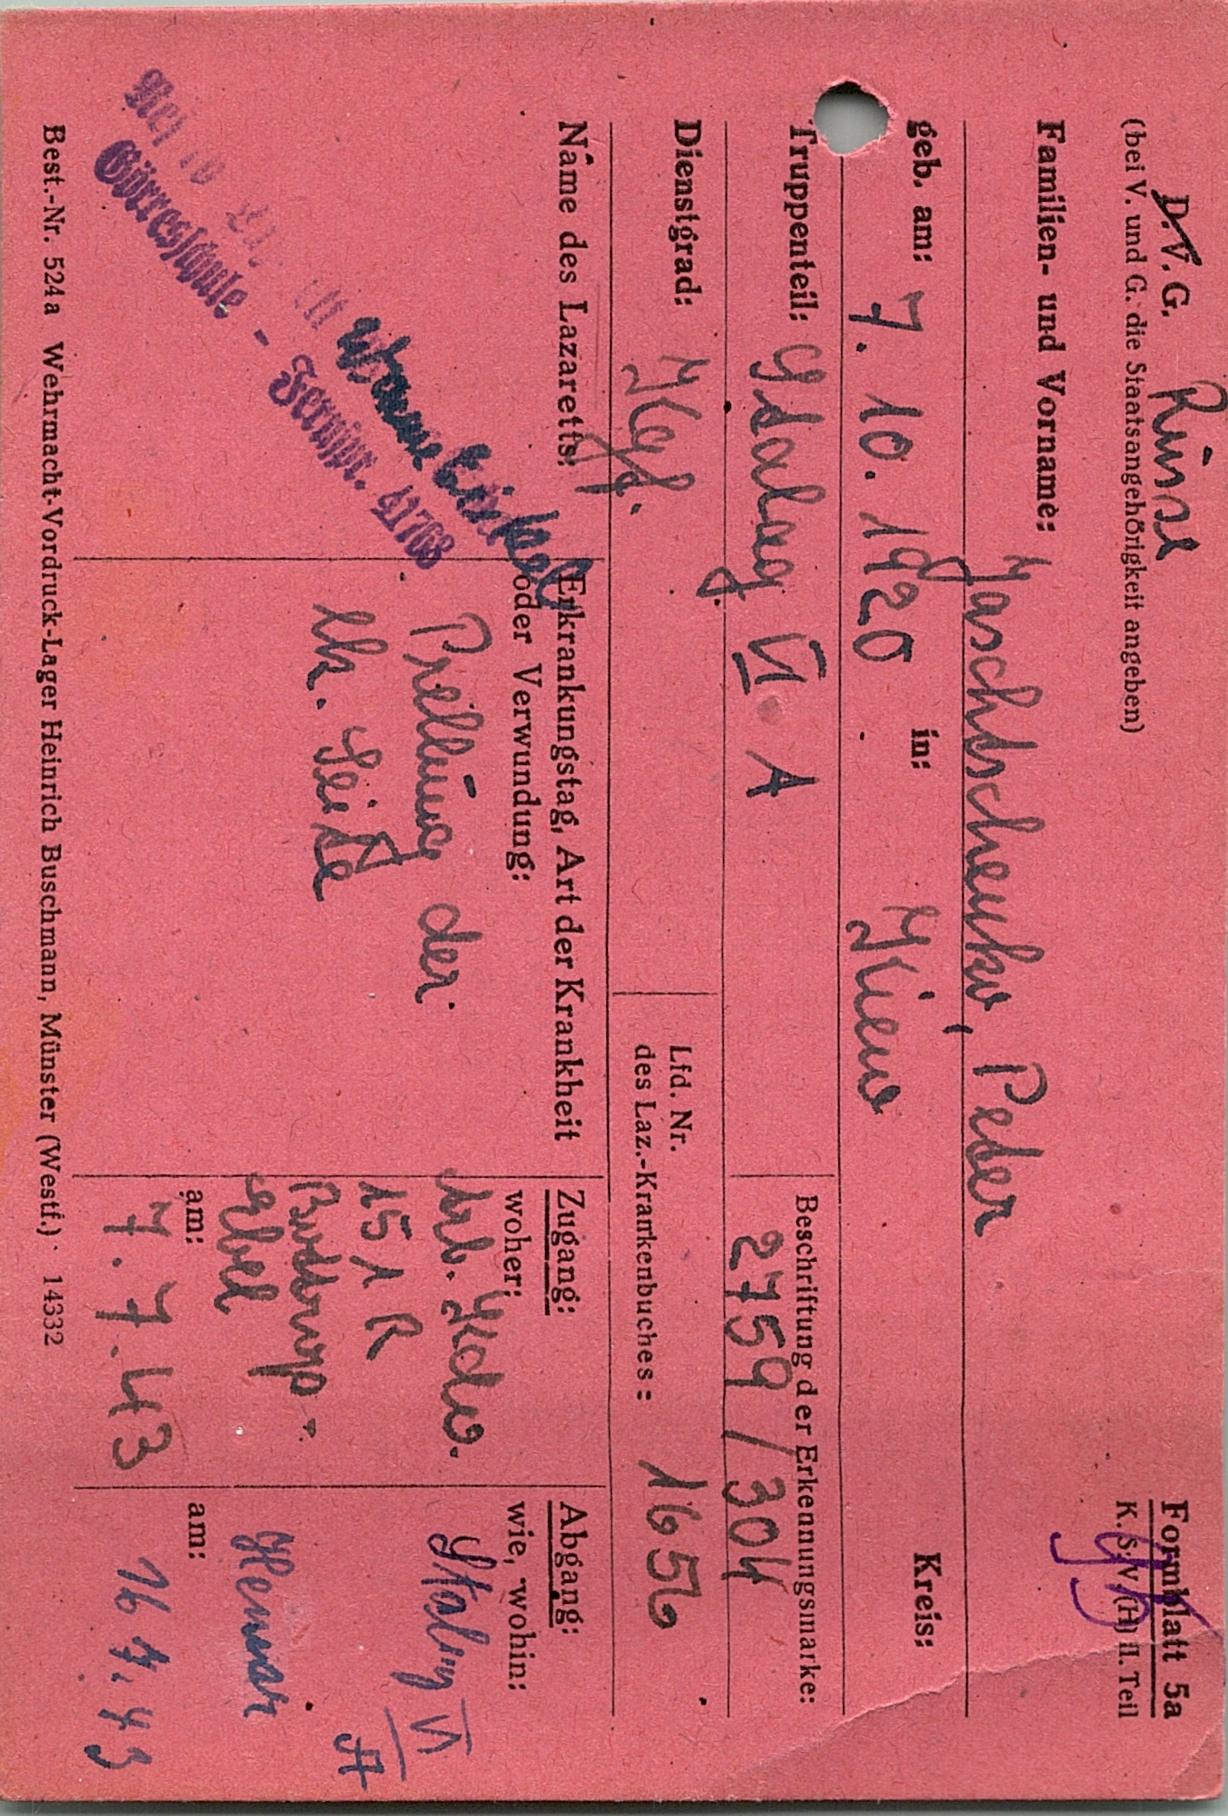 D.V.G. Russe
Formblatt 5a
(bei V. und G. die Staatsangehörigkeit angeben)
K. S. V. (H) II. Teil
Familien- und Vorname: Jaschtschenko, Peter
geb. am: 7. 10. 1920 in: Kiew Kreis:
Truppenteil: Stalag VI. A
Beschriftung der Erkennungsmarke:
2759 / 304
Dienstgrad: Kgf.
Lfd. Nr.
des Laz.-Krankenbuches: 1656
Name des Lazaretts:
Wanne Eickel
Görresschule - Fernspr. 41768
Erkrankungstag, Art der Krankheit
oder Verwundung:
Prellung der
lk. Seite
Zugang:
woher:
Arb. Kdo.
151 R
Bottrop -
Ebel
am:
7. 7. 43
Abgang:
wie, wohin:
Stalag VI
A
Hemer
am:
16 7. 43
Best.-Nr. 524a Wehrmacht-Vordruck-Lager Heinrich Buschmann, Münster (Westf.) · 14332